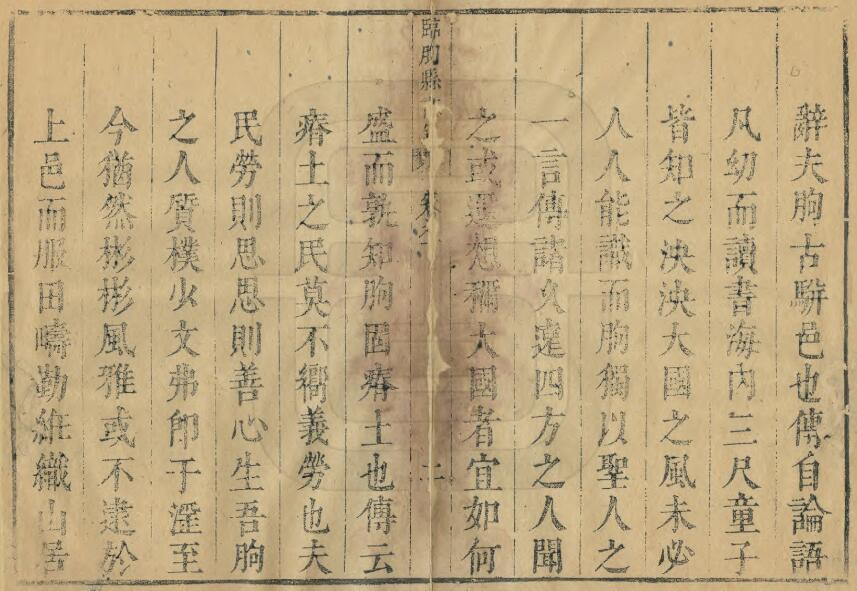 辭夫朐古駢邑也傳自論語
凡幼而讀書海內三尺童子
皆知之泱泱大國之風未必
人人能識而朐獨以聖人之
一言傳諸久遠四方之人聞
之或遐想稱大國者宜如何
臨朐縣 卷之 二
盛而孰知朐固瘠土也傳云
瘠土之民莫不嚮義勞也夫
民勞則思思則善心生吾朐
之人質樸少文弗卽于滛至
今猶然彬彬風雅或不逮於
上邑而服田疇勤維織山居